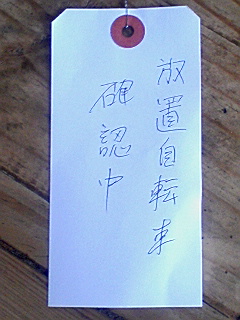 放置自転車
確認中